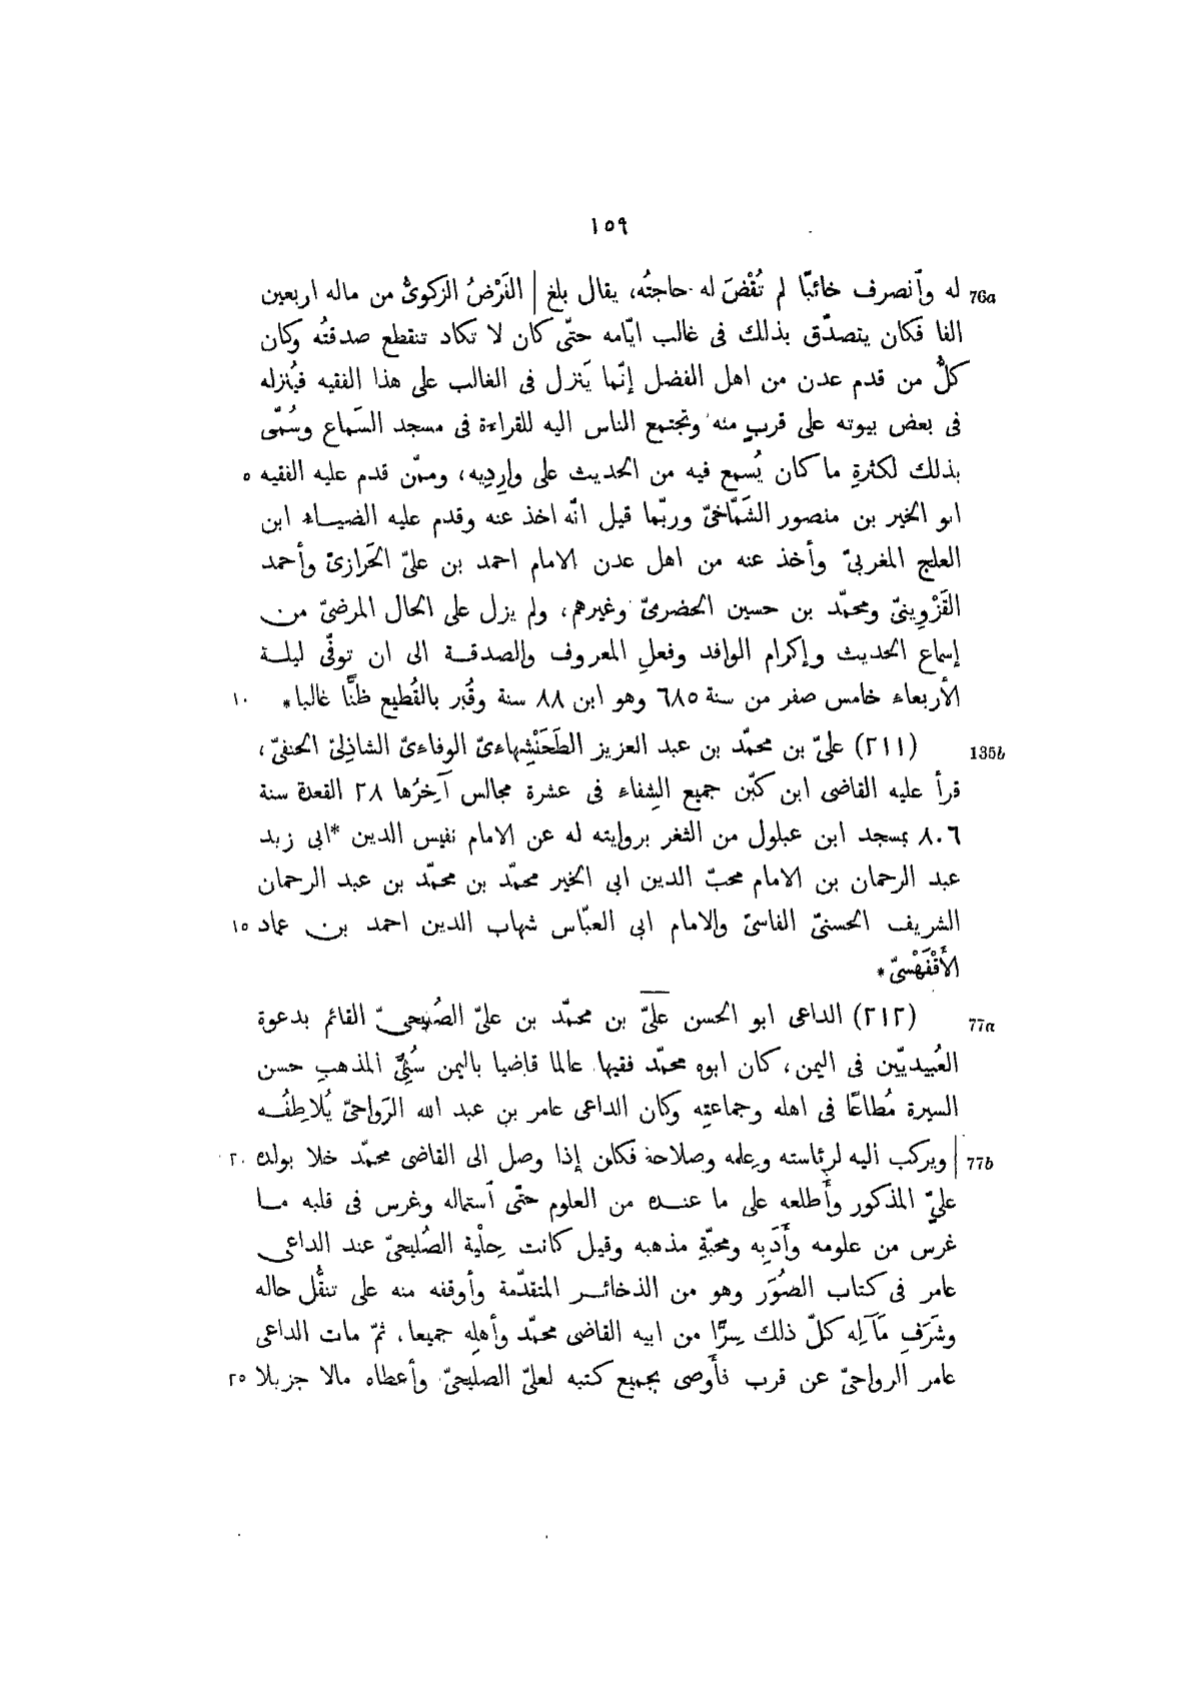 ١٥٩
76a له وٱنصرف خائبًا لم تُقْضَ له حاجتُه، يقال بلغ | الفَرْضُ الزكوىُّ من ماله اربعين
الفا فكان يتصدّق بذلك فى غالب ايّامه حتّى كان لا تكاد تنقطع صدقتُه وكان
كلُّ من قدم عدن من اهل الفضل إنّما يَنزل فى الغالب على هذا الفقيه فيُنزله
فى بعض بيوته على قربٍ منه وتجتمع الناس اليه للقراءة فى مسجد السَماع وسُمّى
بذلك لكثرةِ ما كان يُسمع فيه من الحديث على وارِدِيه، وممّن قدم عليه الفقيه ٥
ابو الخير بن منصور الشَمّاخىّ وربّما قيل انّه اخذ عنه وقدم عليه الضياء ابن
العلج المغربىّ وأخذ عنه من اهل عدن الامام احمد بن علىّ الحَرازىّ وأحمد
القَزْوِينىّ ومحمّد بن حسين الحضرمىّ وغيرهم، ولم يزل على الحال المرضىّ من
إسماع الحديث وإكرام الوافد وفعلِ المعروف والصدقة الى ان توفّى ليلة
الأربعاء خامس صفر من سنة ٦٨٥ وهو ابن ٨٨ سنة وقُبر بالقُطيع ظنًّا غالبا* ١٠
135b (٢١١) علىّ بن محمّد بن عبد العزيز الطَحَنْشِهاءىّ الوفاءىّ الشاذِلىّ الحنفىّ،
قرأ عليه القاضى ابن كبّن جميع الشِفاء فى عشرة مجالس آخِرُها ٢٨ القعدة سنة
٨٠٦ بمسجد ابن عبلول من الثغر بروايته له عن الامام نفيس الدين *ابى زيد
عبد الرحمان بن الامام محبّ الدين ابى الخير محمّد بن محمّد بن عبد الرحمان
الشريف الحسنىّ الفاسىّ والامام ابى العبّاس شهاب الدين احمد بن عماد ١٥
الأَقْفَهْسىّ*
77a (٢١٢) الداعى ابو الحسن علىّ بن محمّد بن علىّ الصُليحىّ القائم بدعوة
العُبيديّين فى اليمن، كان ابوه محمّد فقيها عالما قاضيا باليمن سُنِّىَّ المذهبِ حسن
السيرة مُطاعًا فى اهله وجماعتِه وكان الداعى عامر بن عبد الله الرَواحىّ يُلاطِفُه
77b | ويركب اليه لرئاسته وعِلمه وصلاحه فكان إذا وصل الى القاضى محمّد خلا بولده ٢٠
علىٍّ المذكور وأَطلعه على ما عنده من العلوم حتّى ٱستماله وغرس فى قلبه ما
غرس من علومه وأَدَبِه ومحبّةِ مذهبه وقيل كانت حِلْية الصُليحىّ عند الداعى
عامر فى كتاب الصُوَر وهو من الذخائر المتقدّمة وأوقفه منه على تنقُّل حاله
وشَرَفِ مَآلِه كلّ ذلك سِرًّا من ابيه القاضى محمّد وأهلِه جميعا، ثمّ مات الداعى
عامر الرواحىّ عن قرب فأَوصى بجميع كتبه لعلىّ الصليحىّ وأعطاه مالا جزيلا ٢٥